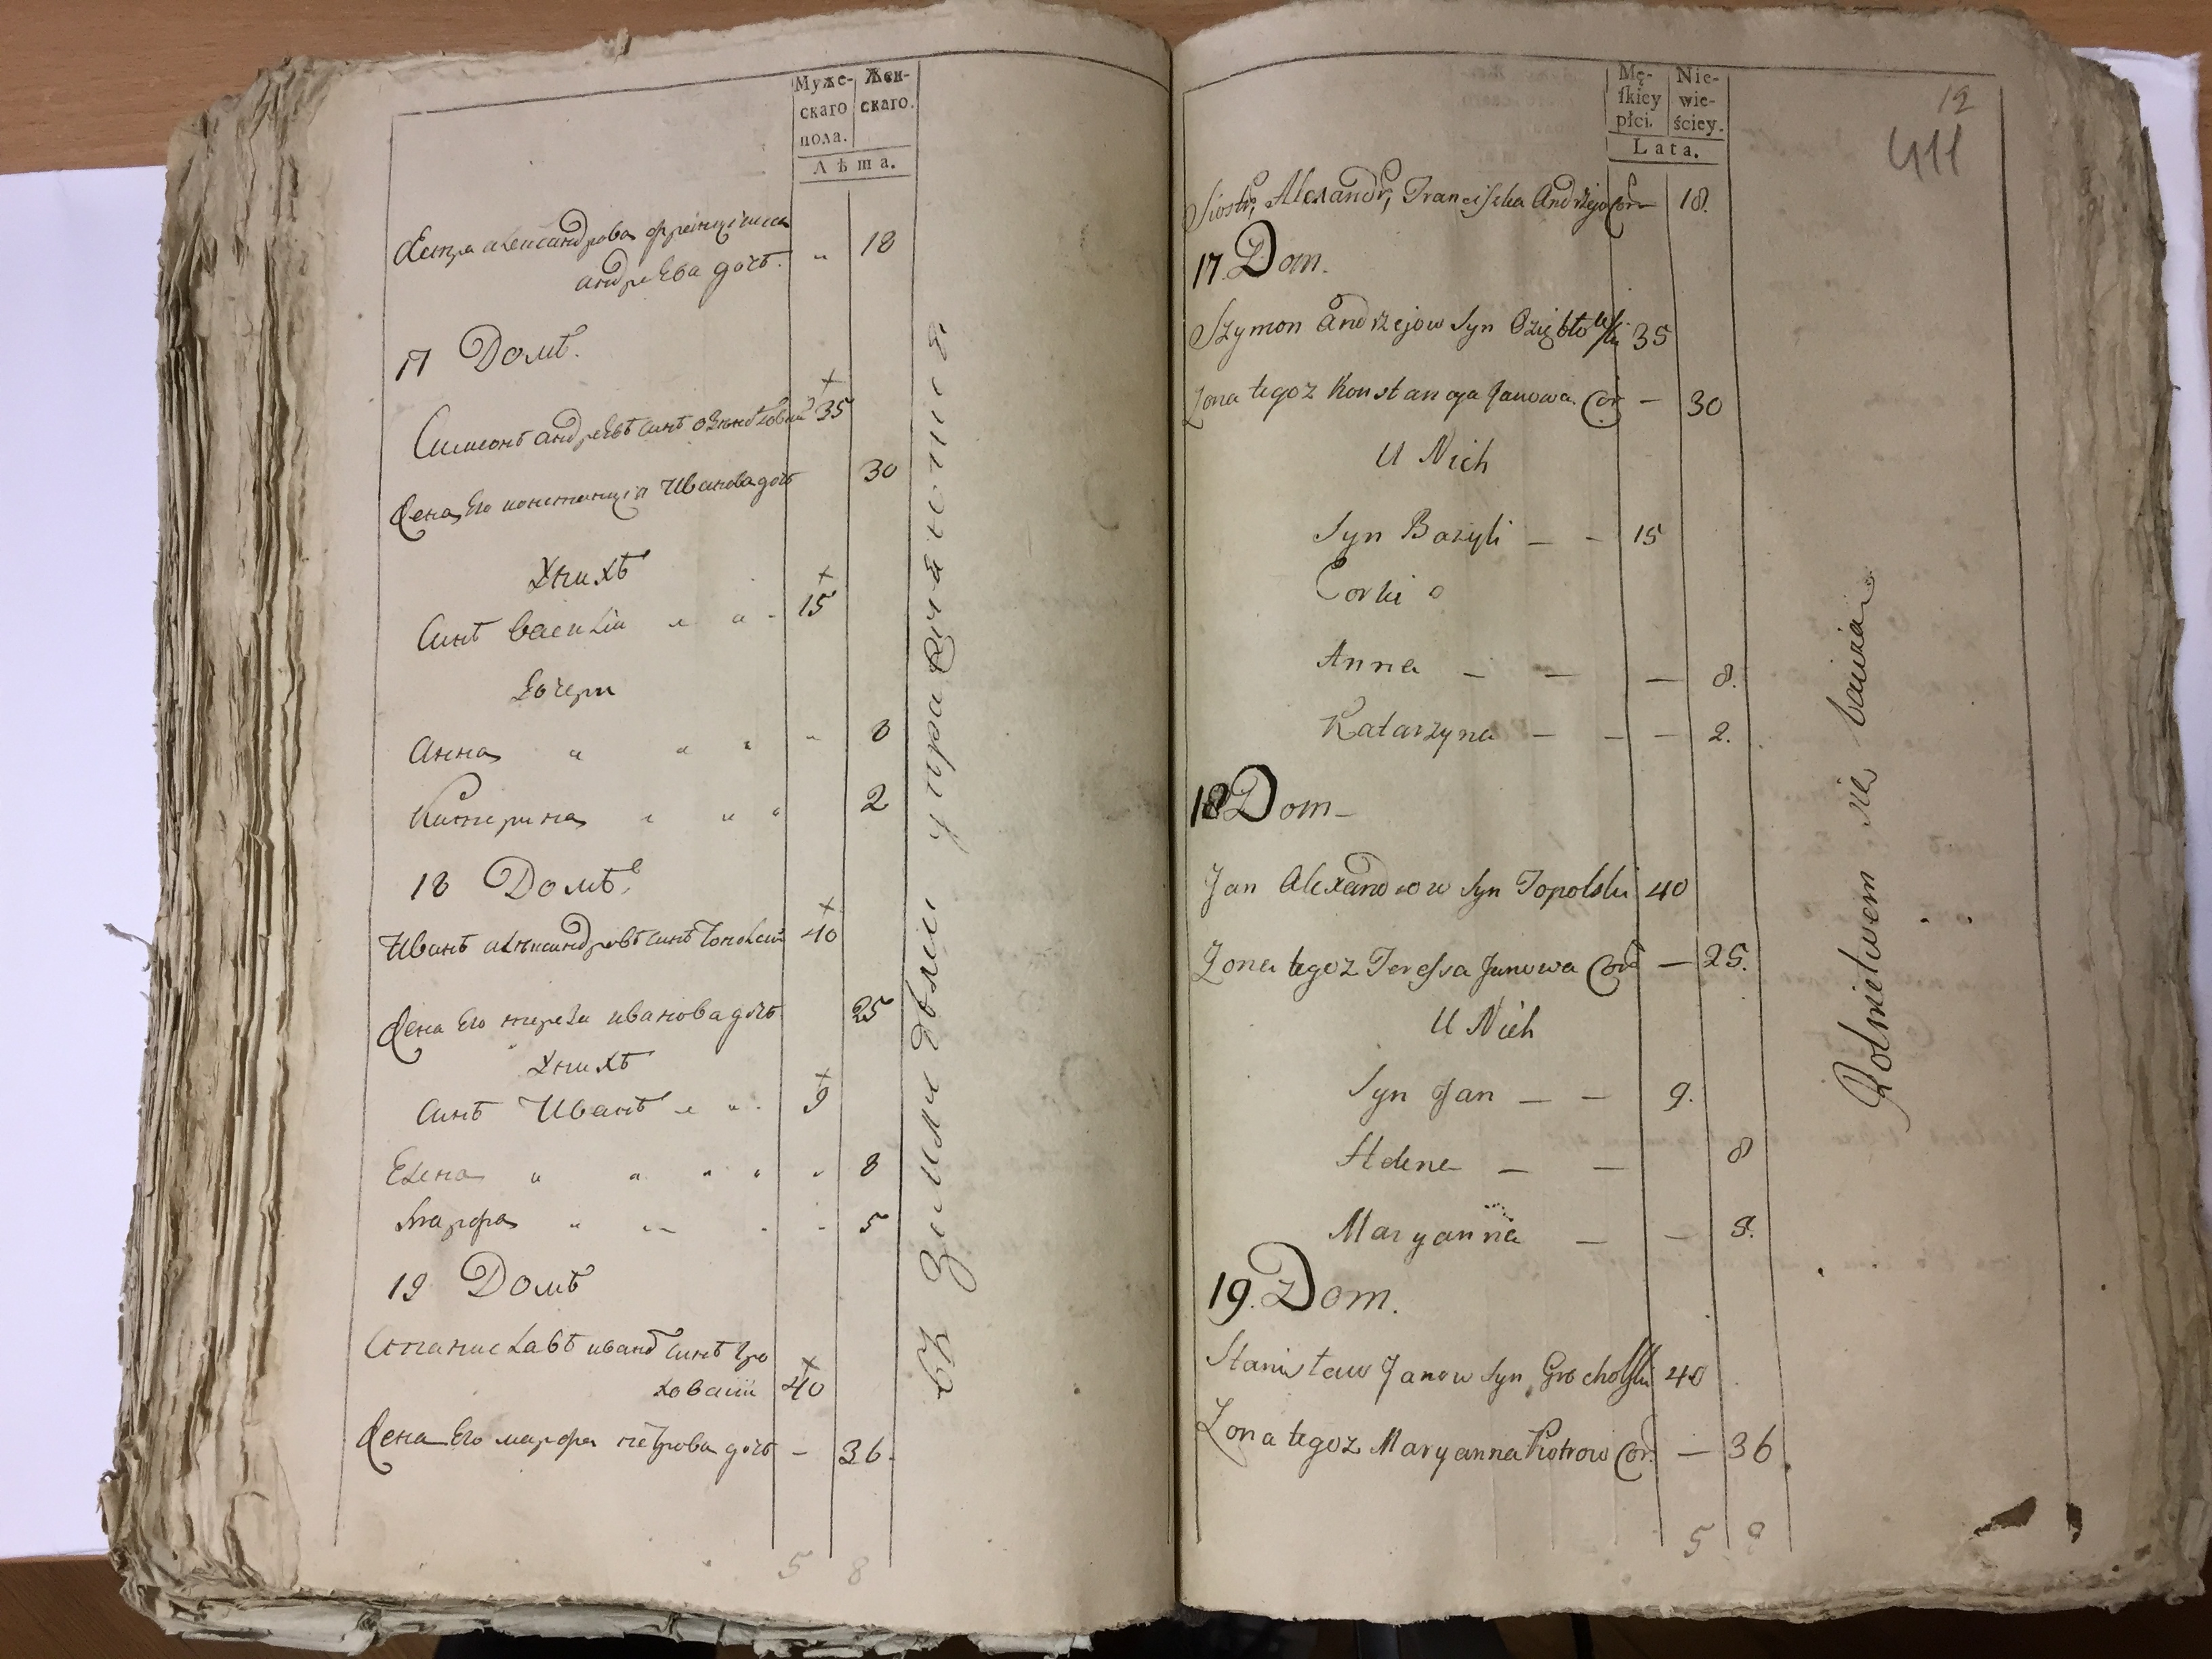 Муже-
скаго
пола.
Жен-
скаго.
Лѣта.
Сестра александрова францишка
андреева дочь. " 18
17 Домъ.
Симеонъ андреевъ синъ 35
Жена Его констанция Иванова дочь 30
У нихъ
Синъ Василий " " 15
Дочери
Анна " " " " 8
Катерина " " " 2
18 Домъ
Иванъ александровъ синъ Топольский 40
Жена Его тереза иванова дочь 25
У нихъ
Синъ Иванъ " " 9
Елена " " " " " 8
Марфа " " " " 5
19 Домъ
Станиславъ иванов синъ Гро
ховский 40
Жена Его марфа петрова дочь – 36.
5 8
въ земледелии упражняются
Mę-
ſkiey
płci.
Nie-
wie-
ściey.
Lata.
12
411
Siostr, Alexandr, Franciszka Andrzejo Cor 18.
17. Dom.
Szymon Andrzejow Syn 35
Zona tegoz Konstancya Janowa Cor – 30
U Nich
Syn Bazyli – – 15
Corki
Anna – – – 8.
Katarzyna – – – 2.
18 Dom –
Jan Alexandrow Syn Topolski 40
Zona tegoz Teressa Janowa Cor – 25.
U Nich
Syn Jan – – 9.
Helena – – 8
Maryanna – – 5.
19. Dom.
Stanisław Janow Syn Grocholski 40
Zona tegoz Maryanna Piotrow Cor. – 36.
5 8
Rolnictwem się bawią